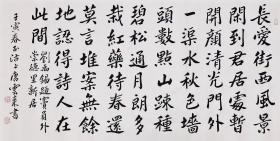 長愛街西風景
閒到君居處暫
開顏清光門外
一渠水秋色墙
頭數點山踈種
碧松通月朗多
栽紅藥待春還
莫言堆案無餘
地認得詩人在
此間
劉禹錫題竇員外
崇德里新居
壬寅春於滬上書